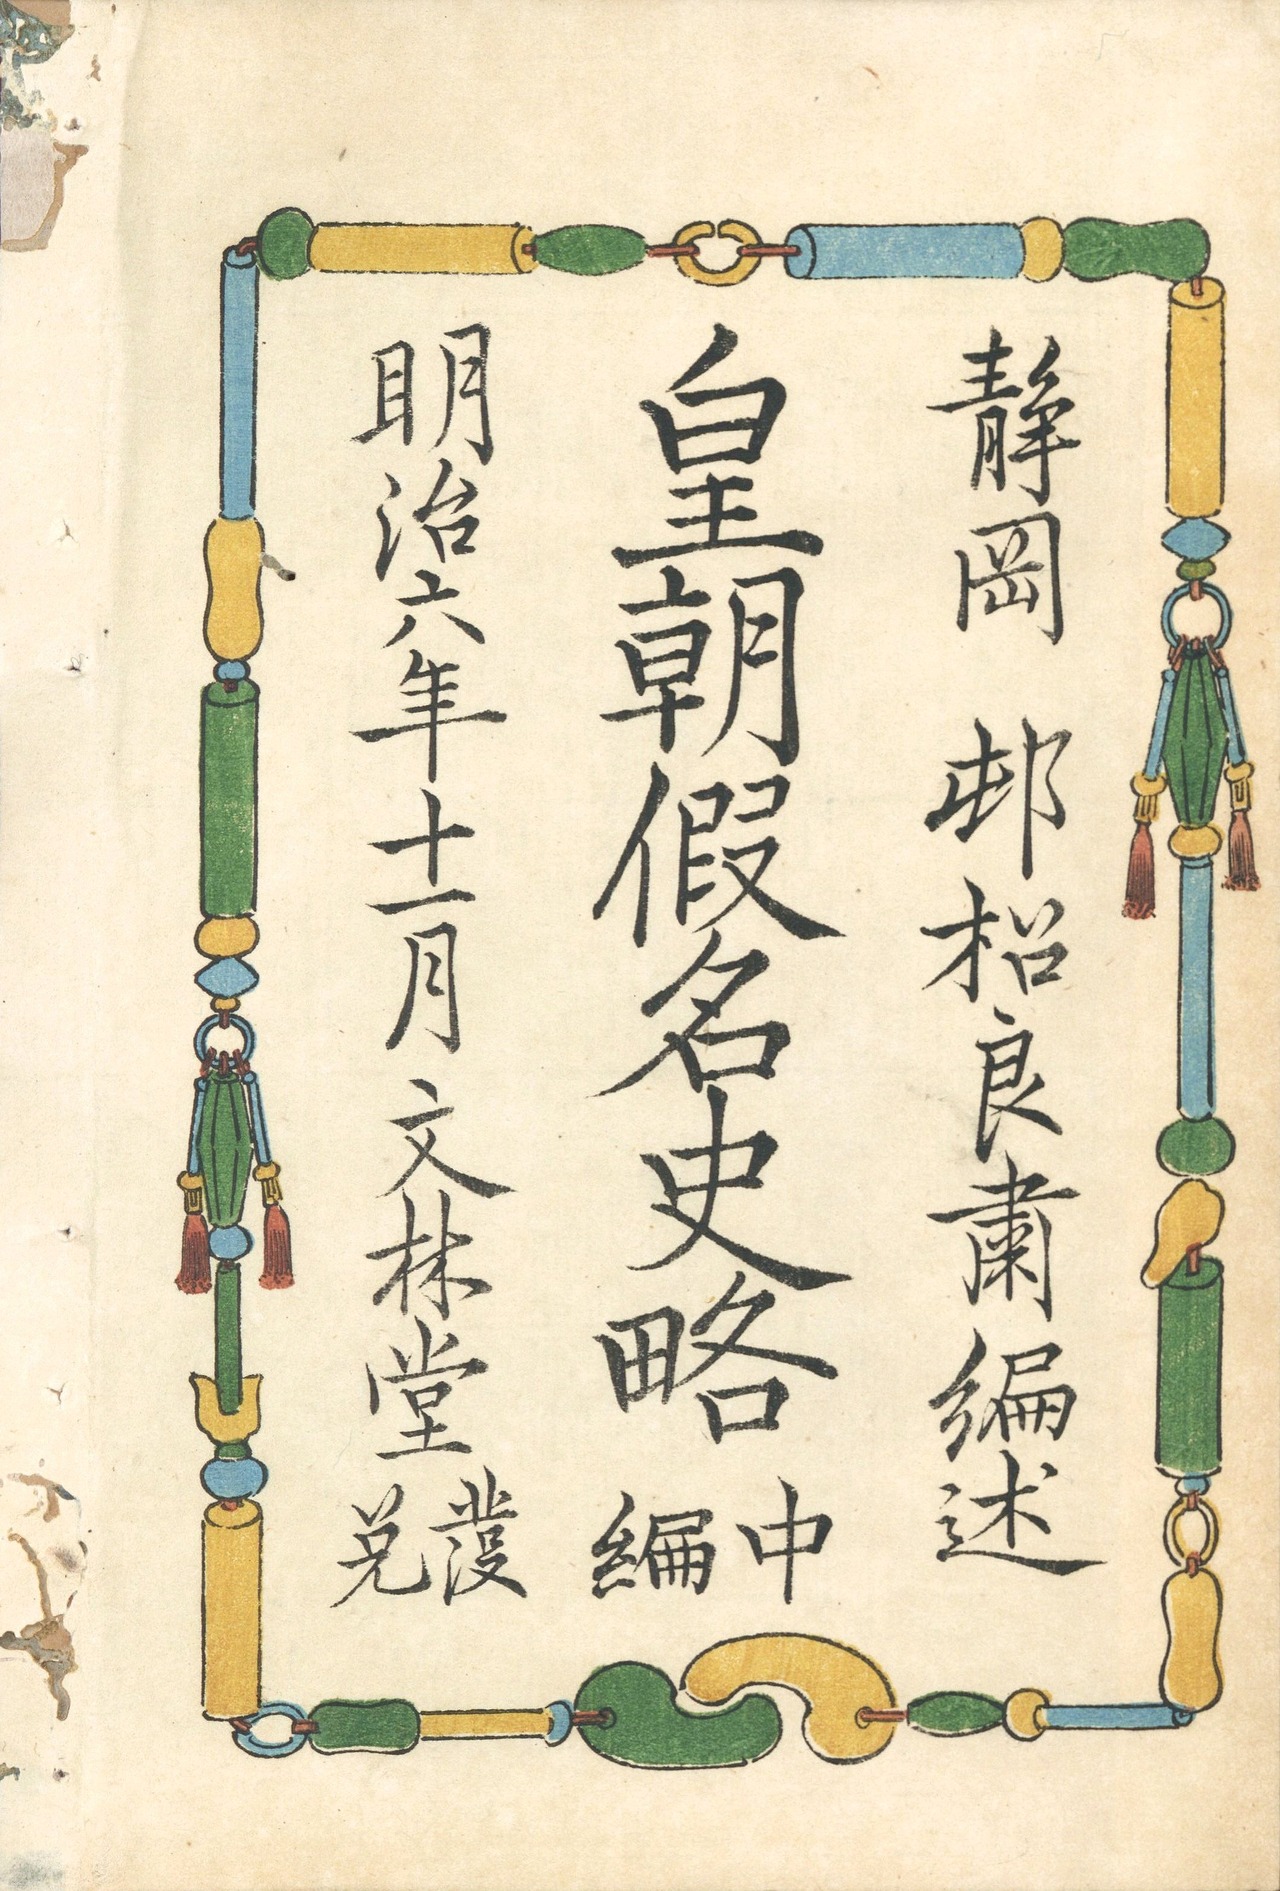 静岡 邨松良粛編述
皇朝假名史略 中編
明治六年十一月 文林堂發兌